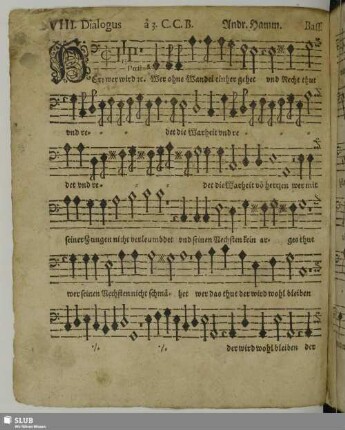 VIII. Dialogus à 3. C. C. B. Andr. Hamm. Bass
HErr wer wird ꝛc. Wer ohne Wandel einher gehet vnd Recht thut
vnd re - - det die Warheit vnd re - -
det vnd re - - - det die Warheit võ hertzen wer mit
seiner Zungen nicht verleumbdet vnd seinen Nechsten kein ar- ges thut
wer seinen Nechsten nicht schmä- het wer das thut der wird wohl bleiben
der wird wohl bleiben der
SLUB
Wir führen Wissen.